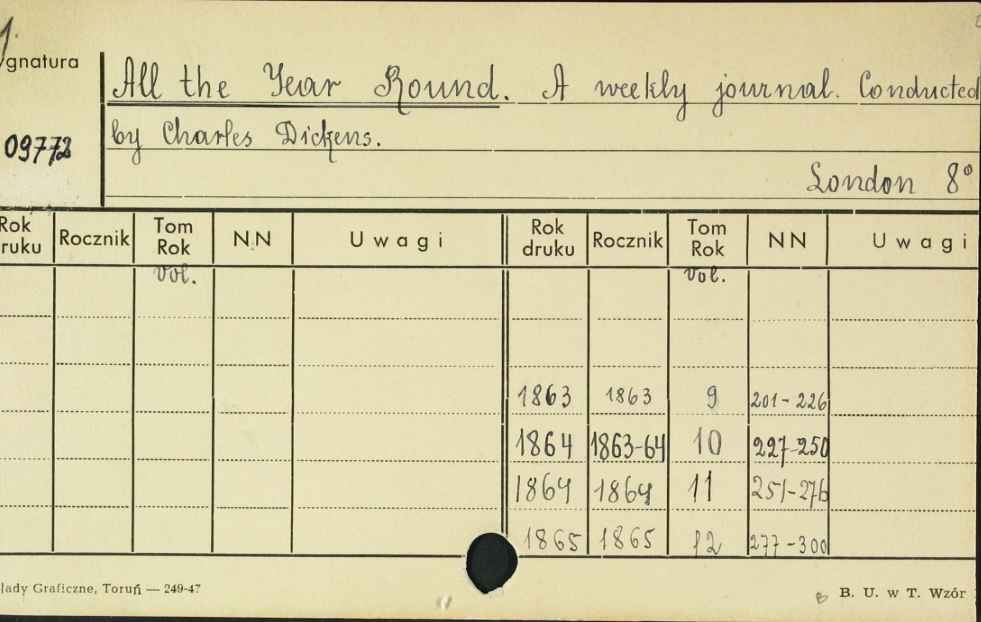 gnatura
All the Year Round. A weekly journal. Conducted
09772
by Charles Dickens.
London 8°
Rok druku Rocznik Tom Rok NN Uwagi Rok druku Rocznik Tom Rok NN Uwagi
vol. vol.
1863 1863 9 201-226
1864 1863-64 10 227-250
1864 1864 11 251-276
1865 1865 12 277-300
łady Graficzne, Toruń — 249-47
B. U. w T. Wzór